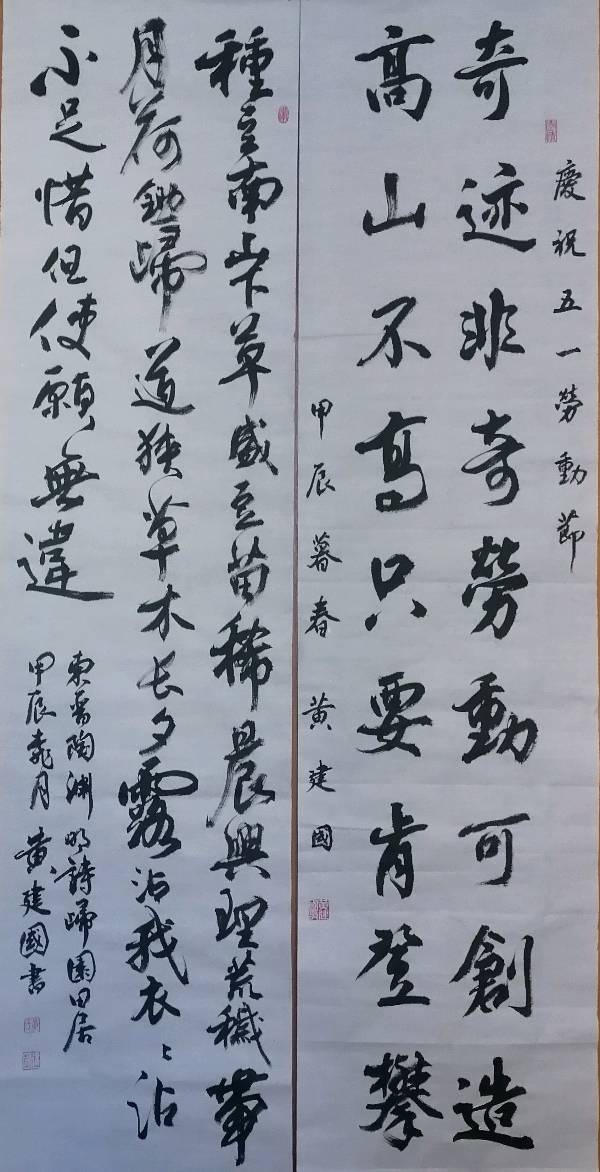 慶祝五一勞動節
奇迹非奇勞動可創造
高山不高只要肯登攀
甲辰暮春黄建國
種豆南山下草盛豆苗稀晨興理荒穢帶
月荷鋤歸道狹草木长夕露沾我衣衣沾
不足惜但使願無違
東晋陶渊明詩歸園田居
甲辰月黄建國書